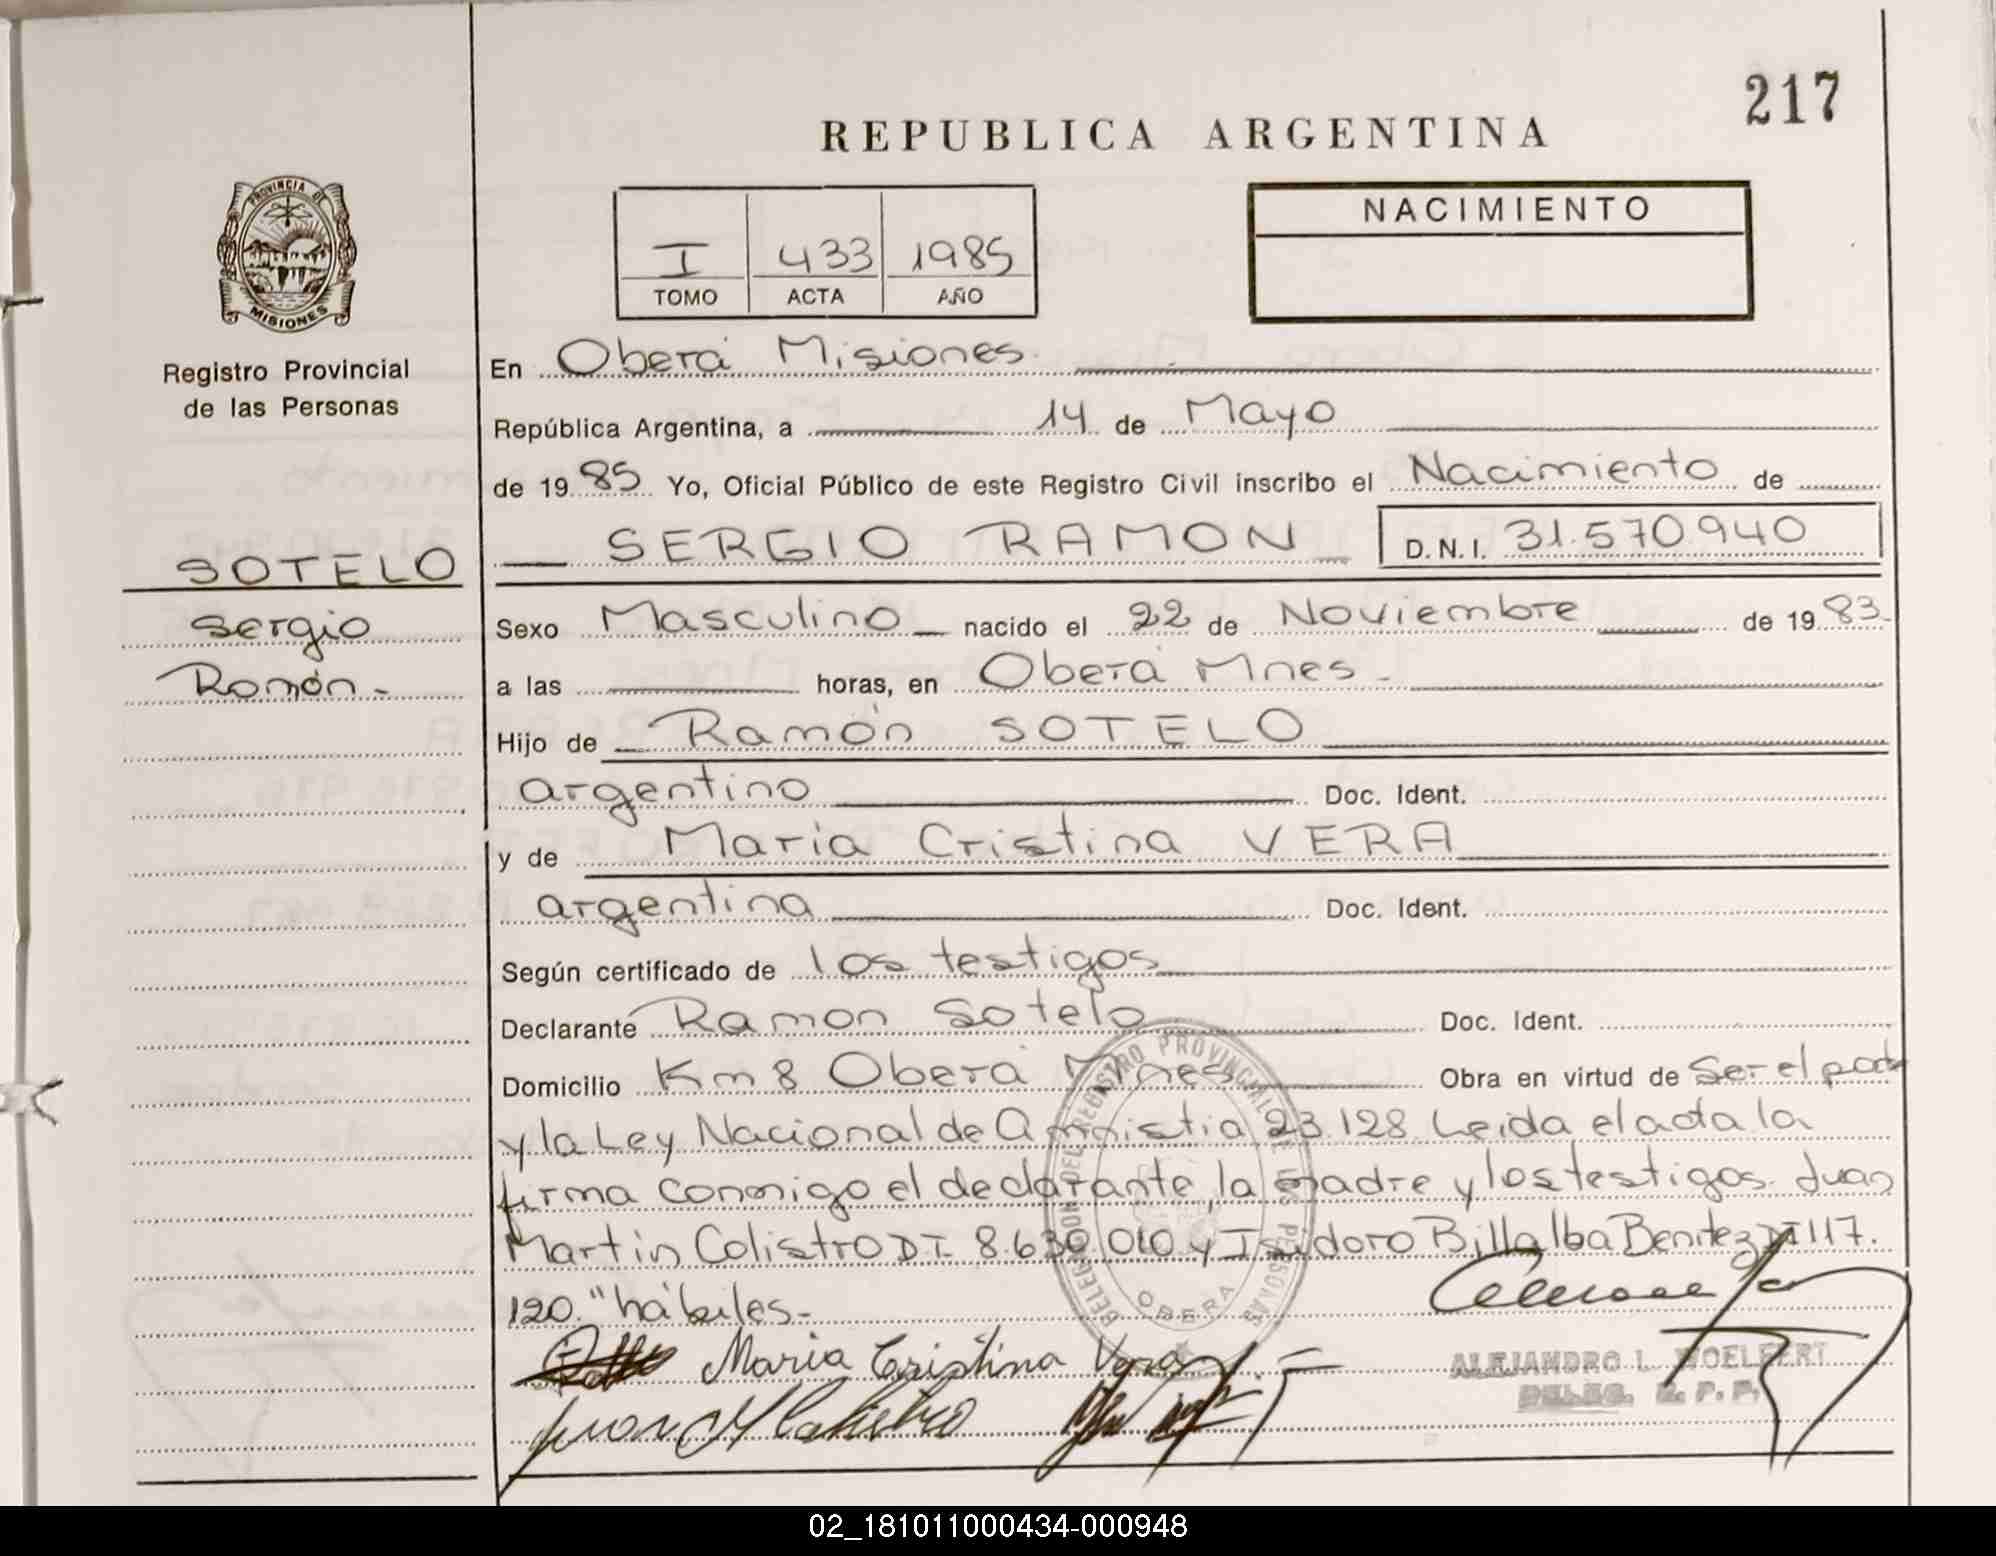 217
REPUBLICA ARGENTINA
PROVINCIA DE
MISIONES
I 433 1985
TOMO ACTA AÑO
NACIMIENTO
Registro Provincial
de las Personas
SOTELO
Sergio
Ramón.-
En Oberá Misiones.
República Argentina, a 14 de Mayo
de 1985 Yo, Oficial Público de este Registro Civil inscribo el Nacimiento de
SERGIO RAMON D.N.I. 31.570.940
Sexo Masculino nacido el 22 de Noviembre de 1983.
a las horas, en Oberá Mnes.
Hijo de Ramón SOTELO
argentino Doc. Ident.
y de María Cristina VERA
argentina Doc. Ident.
Según certificado de los testigos
Declarante Ramon Sotelo Doc. Ident.
Domicilio Km 8 Oberá Mnes Obra en virtud de Ser el padre
y la Ley Nacional de Amnistia 23.128. Leida el acta la
firma conmigo el declarante, la madre y los testigos. Juan
Martin Colistro D.I. 8.630.010 y Isidoro Billalba Benitez DI 117.
120." hábiles.-
Maria Cristina Vera
ALEJANDRO L. WOELFERT
DELEG. R. P. P.
DELEGACION DEL REGISTRO PROVINCIAL DE LAS PERSONAS
OBERA
02_181011000434-000948